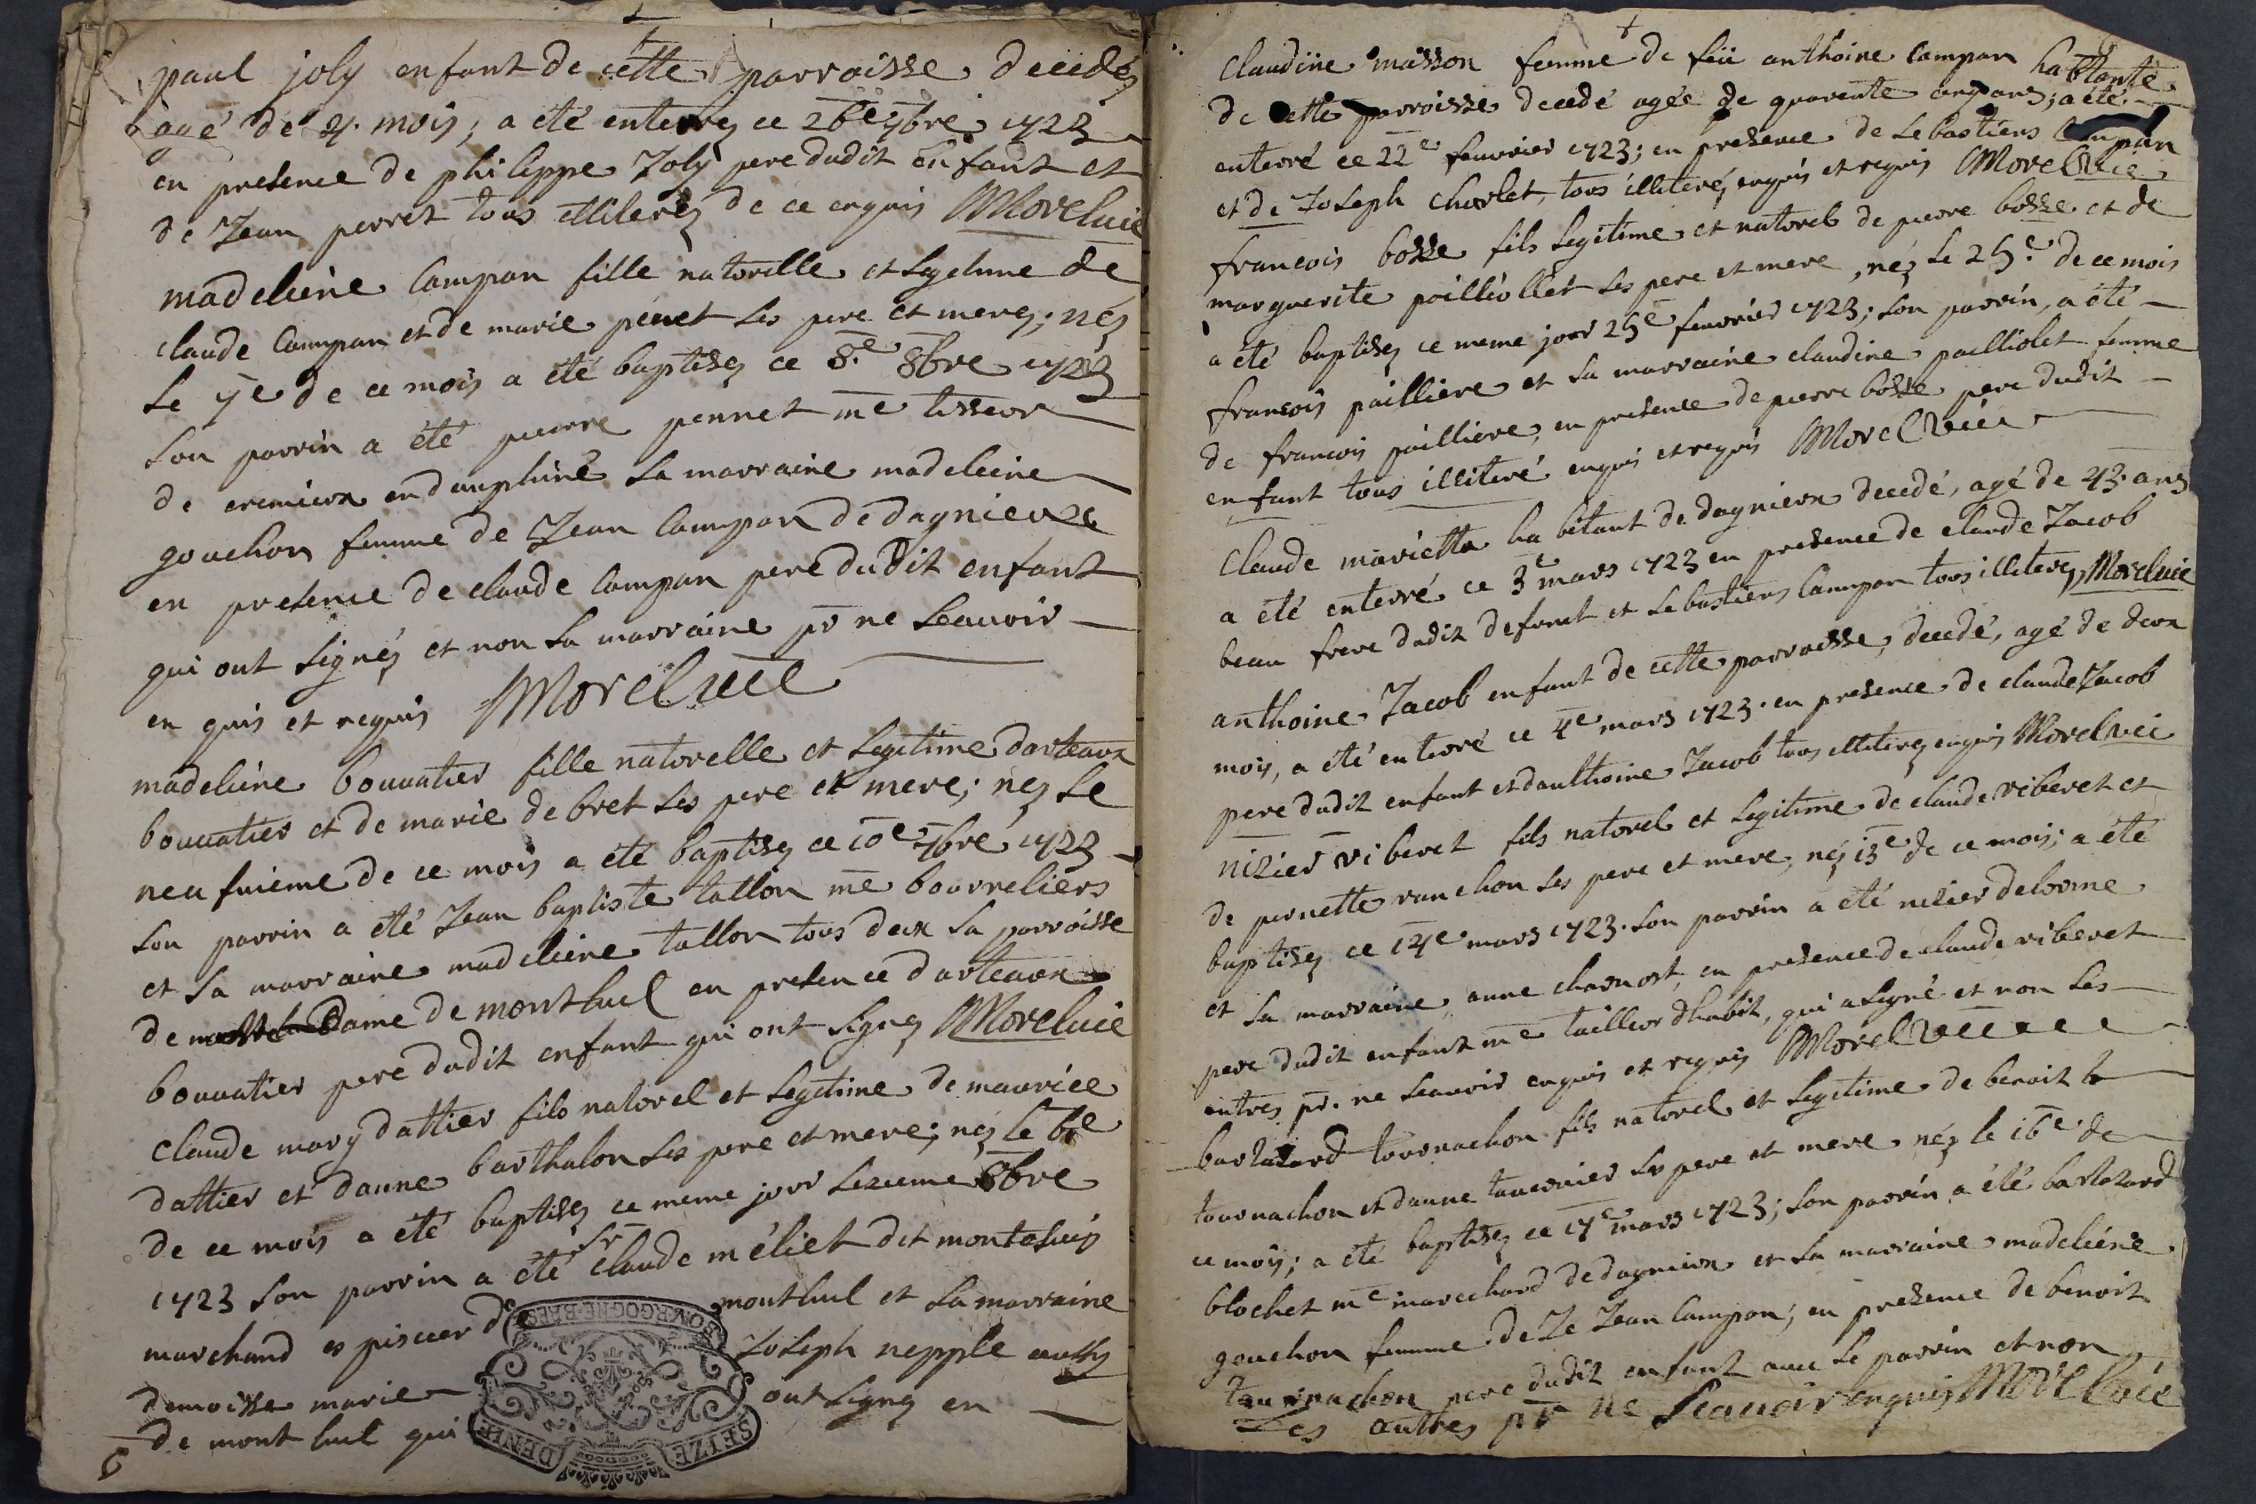 paul joly enfant de cette parroisse decedéz
agé de 4. mois; a été enterréz ce 26e 7bre 1723
en presence de philippe Joly pere dudit enfant et
de Jean perret tous illiterez de ce enquis Morel vice
madeleine Campan fille naturelle et legitime de
claude Campan et de marie penet ses pere et mere; néz
le 7e de ce mois a été baptiséz ce 8.e 8bre 1723
son parrin a été pierre pennet me tisseur
de cremieux en dauphiné sa marraine madeleine
gouchon femme de Jean Campan de dagnieux
en presence de claude Campan pere dudit enfant
qui ont signéz et non la marraine pr ne sçauoir
en quis et requis Morel vice
madeleine bouuatier fille naturelle et legitime darteaux
bouuatier et de marie debret ses pere et mere; néz le
neufuieme de ce mois a été baptiséz ce 10e 7bre 1723
son parrin a été Jean baptiste tallon me bourreliers
et sa marraine madeleine tallon tous deux la parroisse
de Dame de montluel en presence darteaux
bouuatier pere dudit enfant qui ont signéz Morel vice
claude mary dattier fils naturel et legitime de maurice
dattier et danne barthalon ses pere et mere; néz le 6e
de ce mois a été baptiséz ce meme jour sixieme 8bre
1723 son parrin a été sr claude méliet dit
marchand montluel et sa marraine
demoisse marie Joseph nepple
de montluel qui ont signéz en
BOURGOGNE-BRES
SEIZE
DENIE
Claudine masson femme de feü anthoine Campan habitante
de cette parroisse decedé agée de quarente cinq ans; a été
enterré ce 22e feuurier 1723; en presence de sebastiens Campan
et de Joseph charlet, tous illiteréz enquis et requis Morel vice
francois bosse fils legitime et naturel de pierre bosse et de
marguerite pailliollet ses pere et mere, néz le 25e de ce mois
a été baptiséz ce meme jour 25e feuurier 1723; son parrin, a été
francois pailliere et sa marraine claudine pailliolet femme
de francois pailliere, en presence de pierre bosse pere dudit
enfant tous illiteré enquis et requis Morel vice
Claude marietta habitant de dagnieux decedé, agé de 43. ans
a été enterré ce 3e mars 1723 en presence de claude Jacob
beau frere dudit defunct et sebastiens Campan tous illiterez, Morel vice
anthoine Jacob enfant de cette parroisse, decedé, agé de deux
mois, a été enterré ce 4e mars 1723. en presence de claude Jacob
pere dudit enfant et danthoine Jacob tous illiterez enquis Morel vice
nizier viberet fils naturel et legitime de claude viberet et
de pernette ranchon ses pere et mere, néz 13e de ce mois; a été
baptiséz ce 14e mars 1723. son parrin a été nizier delorme
et sa marraine anne charnost, en presence de claude viberet
pere dudit enfant me tailleur dhabit, qui a signé et non les
autres pr. ne sçauoir enquis et requis Morel vice
baltazard tournachon fils naturel et legitime de benoit
tournachon et danne tauernier ses pere et mere néz le 16e de
ce mois; a été baptiséz ce 17e mars 1723; son parrin a été baltazard
blochet me marechard de dagnieux et sa marraine madeleine
gouchon femme de Jean Campan; en presence de benoit
tournachon pere dudit enfant auec le parrin et non
Les autres pr ne Scauoir enquis Morel vice